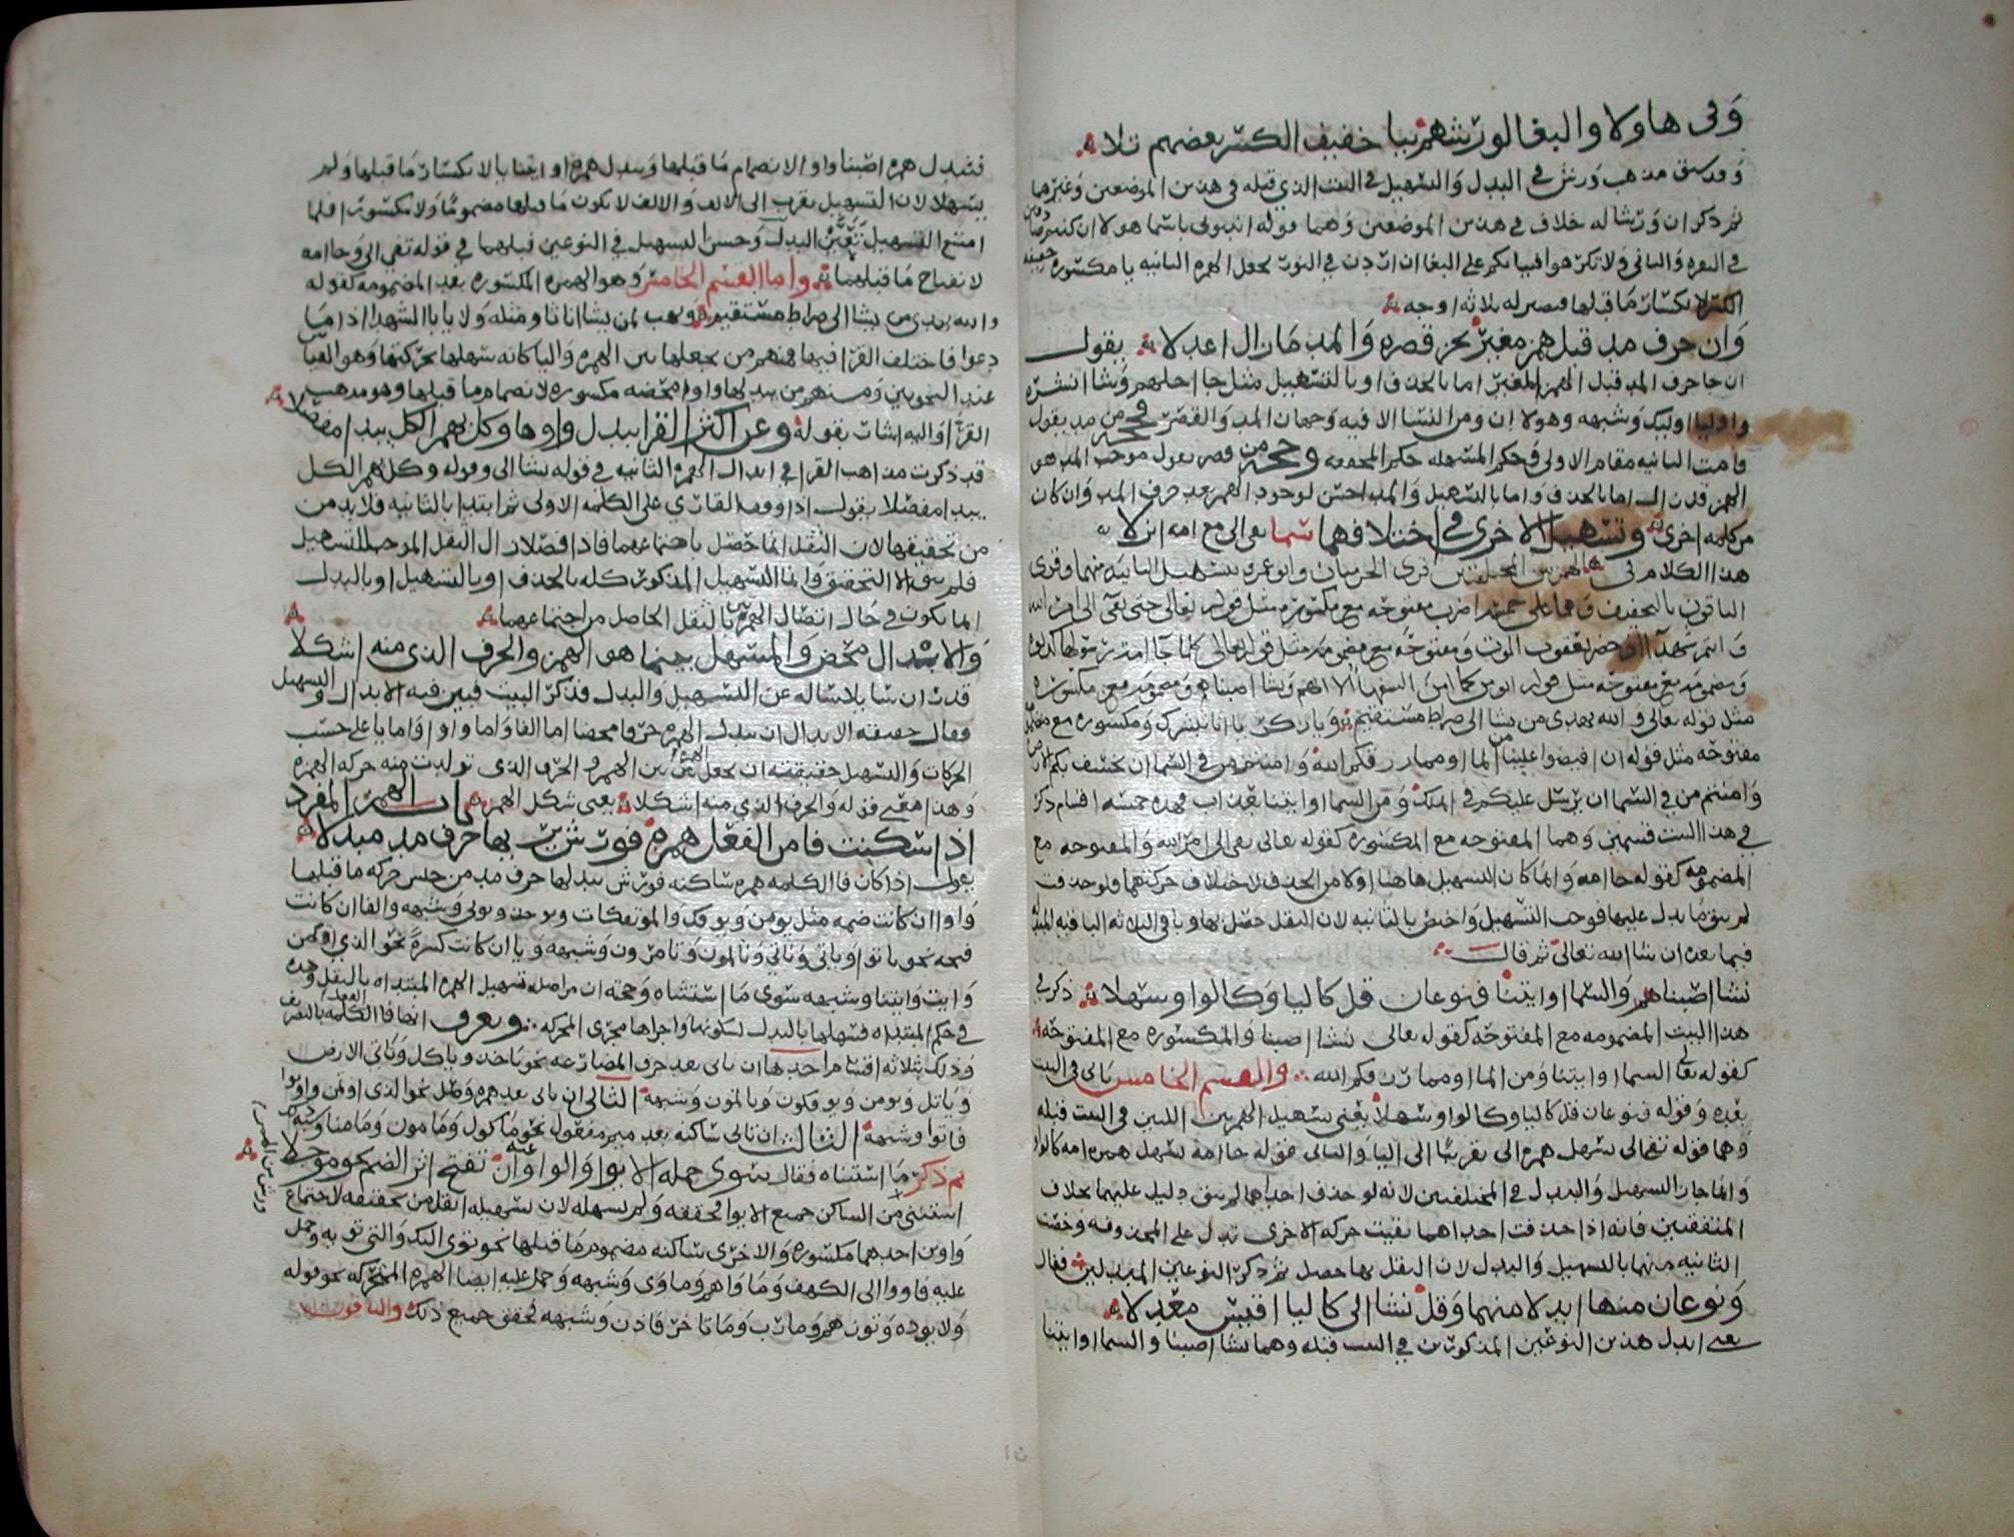 وفى هاولا والبغا لورشهم بيا خفيف الكسر بعضهم تلا
وقد سبق مذهب ورش فى البدل والتسهيل فى البيت الذى قبله فى هذين الموضعين وغيرهما
ثم ذكر ان ورشا له خلاف فى هذين الموضعين وهما قوله انبونى باسما هولا ان كنتم صادقين
فى البقرة والثانى ولا تكرهوا فتياتكم على البغا ان اردن فى النور بجعل الهمزة الثانية يا مكسورة خفيفة
الكسر لانكسار ما قبلها فيصير له ثلاثة اوجه
وان حرف مد قبل همز مغير يجز قصره والمد ما زال اعدلا يقول
ان جا حرف المد قبل الهمز المغير اما بالحذف او بالتسهيل مثل جا احدهم وشا انشره
واوليا اوليك وشبهه وهولا ان ومن النسا الا فيه وجهان المد والقصر وحجة من مد يقول
قامت الثانية مقام الاولى وحكم المسهلة حكم المحققة وحجة من قصر يقول موجب المد هو
الهمز قد زال اما بالحذف واما بالتسهيل والمد احسن لوجود الهمز بعد حرف المد وان كان
من كلمة اخرى وتسهيل الاخرى فى اختلافهما سما تفى الى مع جا امة انزلا
هذا الكلام فى الهمزتين المختلفتين قرى الحرميان وابو عمرو بتسهيل الثانية منهما وقرى
الباقون بالتحقيق وهما على خمسة اضرب مفتوحة مع مكسورة مثل قوله تعالى حتى تفى الى امر الله
و ام كنتم شهدآ اذ حضر يعقوب الموت ومفتوحة مع مضمومة مثل قوله تعالى كلما جا امة رسولها كذبوه
ومضمومة مع مفتوحة مثل قوله انومن كما امن السفها الا انهم ونشا اصبناهم ومضمومة مع مكسورة
مثل قوله تعالى والله يهدى من يشا الى صراط مستقيم ويا زكريا انا نبشرك ومكسورة مع
مفتوحة مثل قوله ان افيضوا علينا من الما او مما رزقكم الله وامنتم من فى السما ان يخسف بكم الارض
وامنتم من فى السما ان يرسل عليكم فى الملك ومن السما او ايتنا بعذاب فهذه خمسة اقسام ذكر
فى هذا البيت قسمين وهما المفتوحة مع المكسورة كقوله تعالى تفى الى امر الله والمفتوحة مع
المضمومة كقوله جا امة وانما كان التسهيل هاهنا اولا من الحذف لاختلاف حركتهما فلو حذفت
لم يبق ما يدل عليها فوجب التسهيل واختص بالثانية لان الثقل حصل بها وباقى الثلاثة
فيما بعد ان شا الله تعالى ثم قال
نشا اصبناهم والسما او ايتنا فنوعان قل كاليا وكالوا وسهلا ذكر فى
هذا البيت المضمومة مع المفتوحة كقوله تعالى نشا اصبنا والمكسورة مع المفتوحة
كقوله تعالى السما او ايتنا ومن الما او مما رزقكم الله والقسم الخامس ياتى فى البيت
بعده وقوله فنوعان قل كاليا وكالوا وسهلا يعنى تسهيل الهمزتين اللتين فى البيت قبله
وهما قوله تفى الى تسهل همزة الى تقريبا الى اليا والثانى قوله جا امة تسهل همزة امة كالواو
وانما جاز التسهيل والبدل فى المختلفتين لانه لو حذف احداهما لم يبق دليل عليهما بخلاف
المتفقتين فانه اذا حذفت احداهما بقيت حركة الاخرى تدل على المحذوفة وخصت
الثانية منهما بالتسهيل والبدل لان الثقل بها حصل ثم ذكر النوعين المبدلين فقال
ونوعان منها ابدلا منهما وقل نشا الى كاليا اقيس معدلا
يعنى ابدل هذين النوعين المذكورين فى البيت قبله وهما نشا اصبنا والسما او ايتنا
فتبدل همزة اصبنا واوا لانضمام ما قبلها وتبدل همزة او ايتنا يا لانكسار ما قبلها ولم
يسهلا لان التسهيل يقرب الى الالف والالف لا يكون ما قبلها مضموما ولا مكسورا فلما
امتنع التسهيل تعين البدل وحسن التسهيل فى النوعين قبلهما فى قوله تفى الى وجا امة
لانفتاح ما قبلهما واما القسم الخامس وهو الهمزة المكسورة بعد المضمومة كقوله
والله يهدى من يشا الى صراط مستقيم ويهب لمن يشا اناثا ومثله ولا ياب الشهدا اذا ما
دعوا فاختلف القرا فيها فمنهم من يجعلها بين الهمزة واليا كانه سهلها بحركتها وهو القياس
عند النحويين ومنهم من يبدلها واوا محضة مكسورة لانضمام ما قبلها وهو مذهب
القرا واليه اشار بقوله وعن اكثر القرا تبدل واوها وكل بهمز الكل يبدا مفصلا
قد ذكرت مذاهب القرا فى ابدال الهمزة الثانية فى قوله يشا الى وقوله وكل بهمز الكل
يبدا مفصلا يقول اذا وقف القارى على الكلمة الاولى ثم ابتدا بالثانية فلا بد من
من تحقيقها لان الثقل انما حصل باجتماعهما فاذا فصلا زال الثقل الموجب للتسهيل
فلم يبق الا التحقيق وانما التسهيل المذكور كله بالحذف او بالتسهيل او بالبدل
انما يكون فى حال اتصال الهمزتين بالثقل الحاصل من اجتماعهما
والابدال محض والمسهل بينما هو الهمز والحرف الذى منه اشكلا
قدر ان سايلا ساله عن التسهيل والبدل فذكر البيت فبين فيه الابدال والتسهيل
فقال حقيقة الابدال ان تبدل الهمزة حرفا محضا اما الفا واما واوا واما يا على حسب
الحركات والتسهيل حقيقته ان يجعل الهمزة بين الهمزة والحرف الذى تولدت منه حركة الهمزة
وهذا معنى قوله والحرف الذى منه اشكلا يعنى شكل الهمز باب الهمز المفرد
اذا سكنت فا من الفعل همزة فورش يريها حرف مد مبدلا
يقول اذا كان فا الكلمة همزة ساكنة فورش يبدلها حرف مد من جنس حركة ما قبلها
واوا ان كانت ضمة مثل يومن ويوفك والموتفكات ويوخذ ويولى وشبهه والفا ان كانت
فتحة نحو ياتوا وياتى وتاتى وتالمون وتامرون وشبهه ويا ان كانت كسرة نحو الذى اوتمن
و ايت وايتنا وشبهه سوى ما استثناه وحجته ان من اصله تسهيل الهمزة المبتداه بالنقل وهذه
فى حكم المبتداه فسهلها بالبدل لسكونها واجراها مجرى المحركة ويعرف ايضا فا الكلمة بالتصريف
وذلك ثلاثة اقسام احدها ان ياتى بعد حرف المضارعة نحو ياخذ وياكل وياتى الارض
وياتل ويومن ويوفكون ويالمون وشبهه الثانى ان ياتى بعد همزة وصل نحو الذى اوتمن واتوا
فاتوا وشبهه الثالث ان تاتى ساكنة بعد ميم مفعول نحو ماكول ومامون ومامنا وشبه ذلك
ثم ذكر ما استثناه فقال سوى جملة الايوا والواو عنه ان تفتح اثر الضم نحو موجلا
استثنى من الساكن جميع الايوا فحققه ولم يسهله لان تسهيله اثقل من تحقيقه لاجتماع
واوين احدهما مكسورة والاخرى ساكنة مضموم ما قبلها نحو توى اليك والتى توويه وحمل
عليه فاووا الى الكهف وما واهم وماوى وشبهه وحمل عليه ايضا الهمزة المتحركة نحو قوله
ولا يوده وتوزهم وما رب وما تاخر فاذن وشبهه فحقق جميع ذلك والباقون